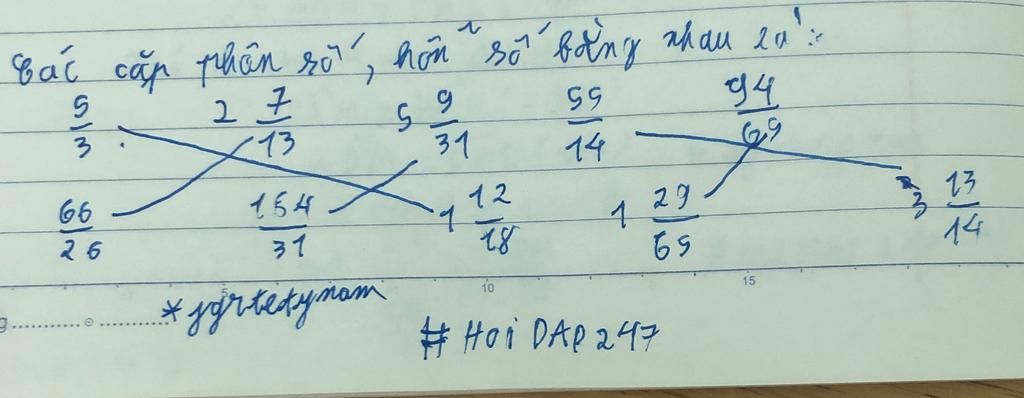 Các cặp phân số, hỗn số bằng nhau là:
5/3 2 7/13 5 9/31 55/14 94/65
66/26 164/31 1 12/18 1 29/65 3 13/14
10 15
*jgrtedynam
# HOI DAP 247